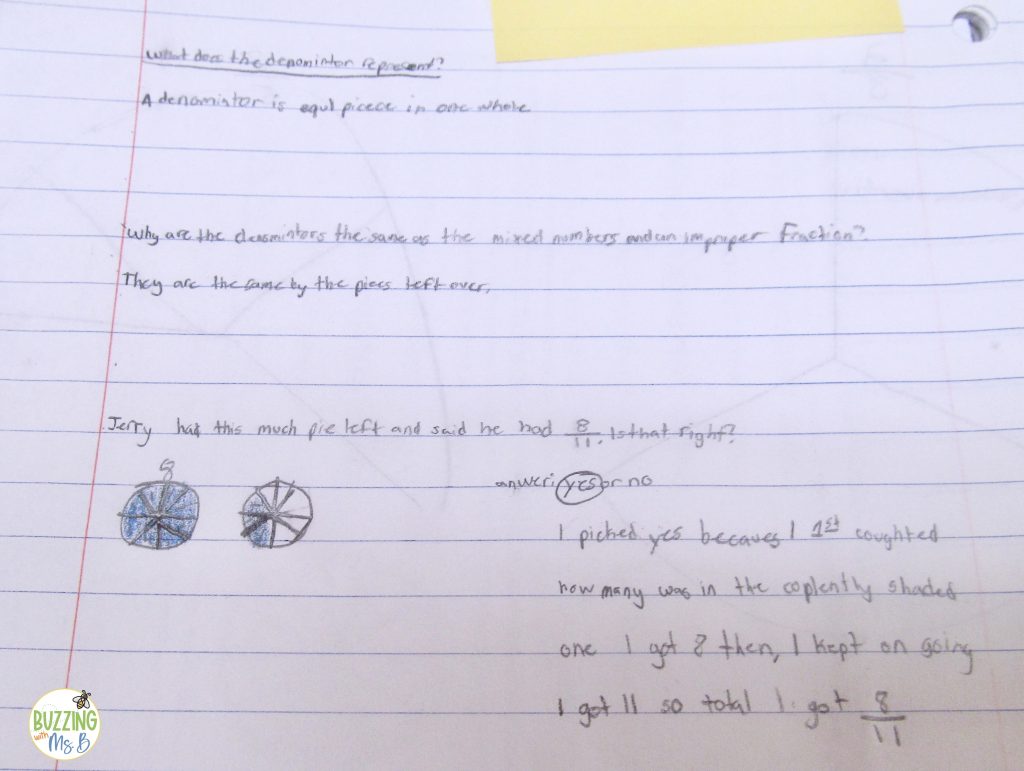 What does the denomintor represent?
A denomintor is equl picece in one whole
Why are the denomintors the same as the mixed numbers and an improper Fraction?
They are the same by the pices left over.
Jerry has this much pie left and said he had 8/11. Is that right?
8
anwer: yes or no
I picked yes becaues I 1st coughted
how many was in the coplently shaded
one I got 8 then, I kept on going
I got 11 so total I got 8/11
BUZZING
with
Ms. B